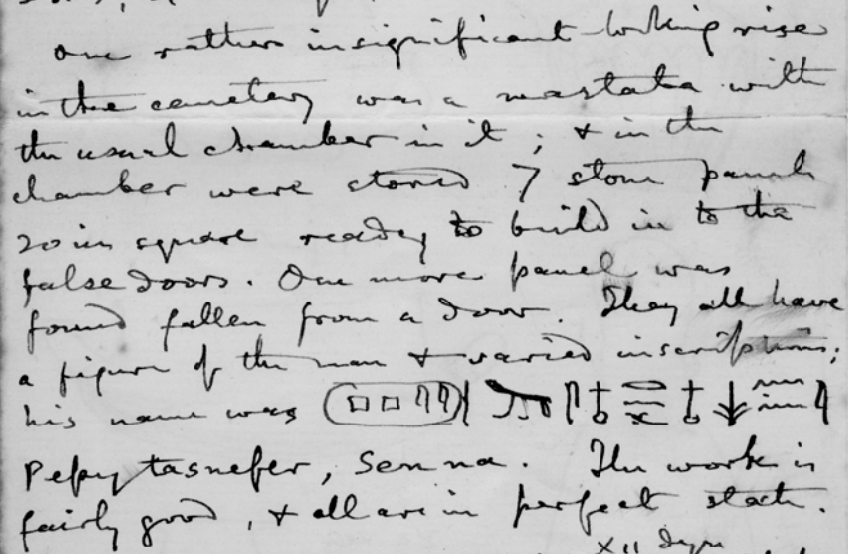 One rather insignificant-looking rise
in the cemetery was a mastaba with
the usual chamber in it ; & in the
chamber were stored 7 stone panels
20 in square ready to build in to the
false doors. One more panel was
found fallen from a door. They all have
a figure of the man & varied inscriptions;
his name was
Pepy tasnefer, Senna. The work is
fairly good, & all are in perfect state.
XII Dyn